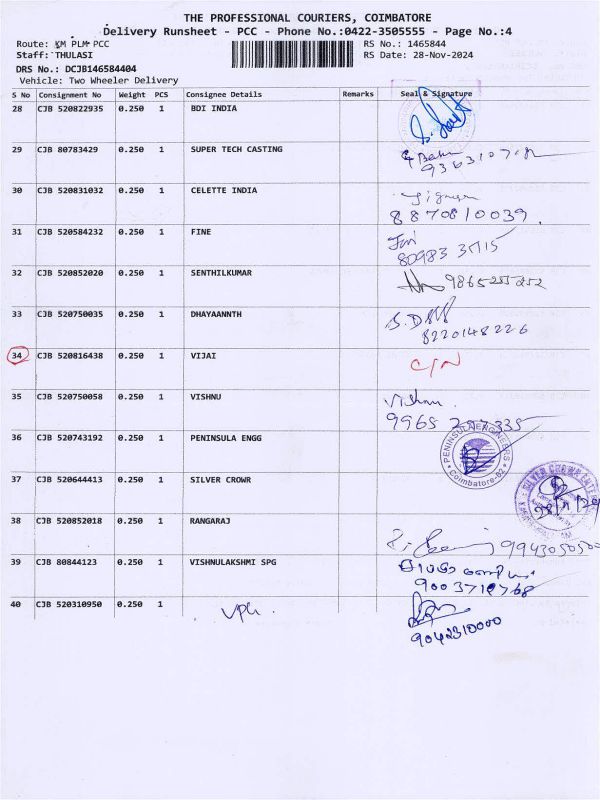 THE PROFESSIONAL COURIERS, COIMBATORE
Delivery Runsheet - PCC - Phone No.:0422-3505555 - Page No.:4
Route: KM PLM PCC RS No.: 1465844
Staff: THULASI RS Date: 28-Nov-2024
DRS No.: DCJB146584404
Vehicle: Two Wheeler Delivery
S No Consignment No Weight PCS Consignee Details Remarks Seal & Signature
28 CJB 520822935 0.250 1 BDI INDIA
29 CJB 80783429 0.250 1 SUPER TECH CASTING
30 CJB 520831032 0.250 1 CELETTE INDIA
8870810039.
31 CJB 520584232 0.250 1 FINE
32 CJB 520852020 0.250 1 SENTHILKUMAR
33 CJB 520750035 0.250 1 DHAYAANNTH
8220148226
34 CJB 520816438 0.250 1 VIJAI C/N
35 CJB 520750058 0.250 1 VISHNU Vishnu
9965
36 CJB 520743192 0.250 1 PENINSULA ENGG
PENINSULA ENGINEERS
Coimbatore-62
37 CJB 520644413 0.250 1 SILVER CROWR
SILVER CROWN
38 CJB 520852018 0.250 1 RANGARAJ
39 CJB 80844123 0.250 1 VISHNULAKSHMI SPG
40 CJB 520310950 0.250 1
9042310000